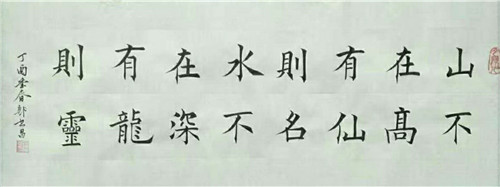 山不
在髙
有仙
則名
水不
在深
有龍
則靈
丁酉季春